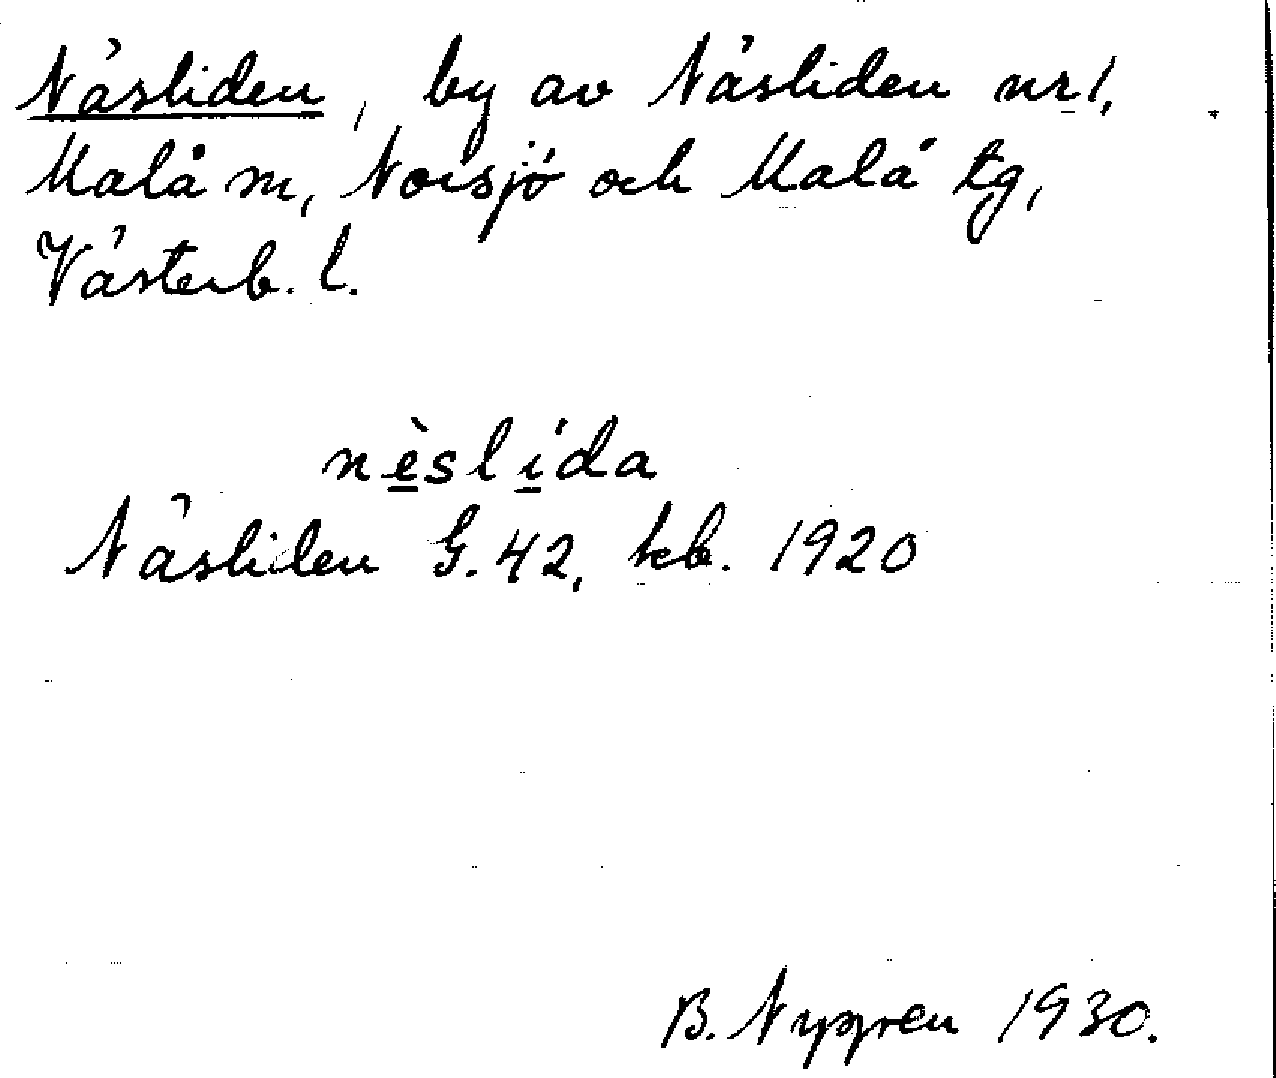 Näsliden, by av Näsliden nr 1,
Malå m, Norsjö och Malå tg,
Västerb. l.
nèslída
Näsliden G. 42, kb. 1920
B. Nygren 1930.